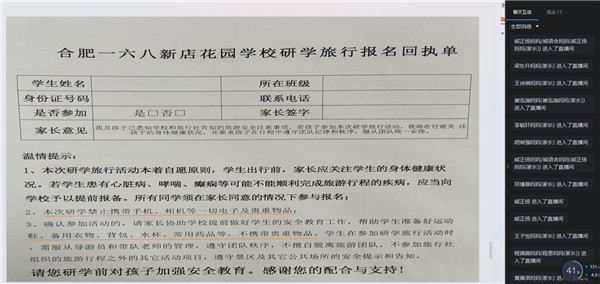 合肥一六八新店花园学校研学旅行报名回执单
学生姓名 所在班级
身份证号码 联系电话
是否参加 是□否□ 家长签字
家长意见 我及孩子已悉知学校和旅行社告知的旅游安全注意事项，若孩子参加本次研学旅行活动，我将在行前关注
孩子的身体健康状况，并要求孩子在行程中遵守团队纪律和秩序，服从团队统一安排。
温情提示：
1、本次研学旅行活动本着自愿原则，学生出行前，家长应关注学生的身体健康状
况。若学生患有心脏病、哮喘、癫痫等可能不能顺利完成旅游行程的疾病，应当向
学校予以提前报备。所有同学须在家长同意的情况下参与报名；
2、本次研学禁止携带手机、相机等一切电子及贵重物品；
3、确认参加活动的，请家长协助学校提前做好学生的安全教育工作，帮助学生准备好运动
鞋、备用衣物、背包、水杯、常用药品等，不携带贵重物品。学生在参加研学旅行活动时
，需服从导游员和带队老师的管理，遵守团队秩序，不擅自脱离旅游团队，不参加旅行社
组织的旅游行程之外的其它活动项目，遵守景区及其它公共场所的安全提示和告知。
请您研学前对孩子加强安全教育。感谢您的配合与支持！
聊天互动
全部消息
妈妈(家长)) 进入了直播间
梁东升妈妈(家长) 进入了直播间
王诗琪妈妈(家长) 进入了直播间
进入了直播间
李毓轩妈妈(家长) 进入了直播间
进入了直播间
妈妈(家长)) 进入了直播间
进入了直播间
进入了直播间
王子悦妈妈(家长) 进入了直播间
进入了直播间
进入了直播间
41%